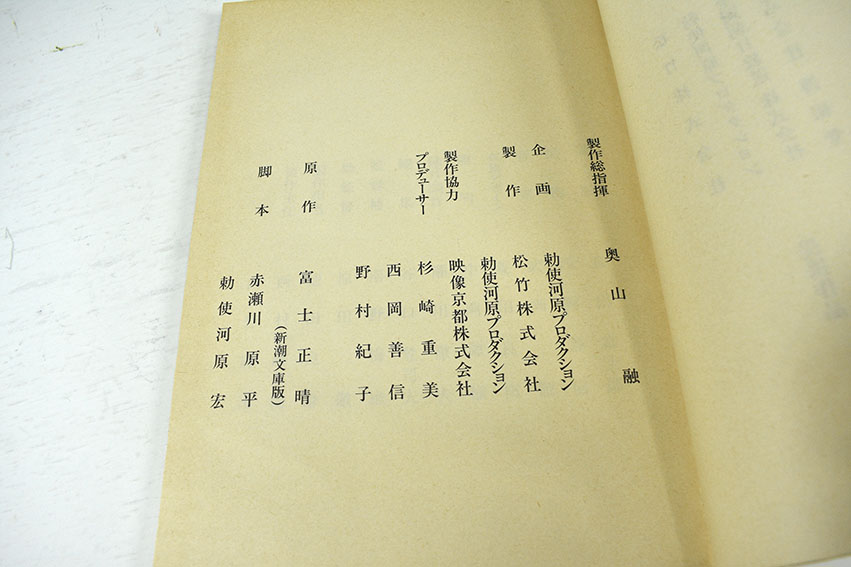 製作総指揮 奥山融
企画 勅使河原プロダクション
製作 松竹株式会社
勅使河原プロダクション
製作協力 映像京都株式会社
プロデューサー 杉崎重美
西岡善信
野村紀子
原作 富士正晴
(新潮文庫版)
脚本 赤瀬川原平
勅使河原宏